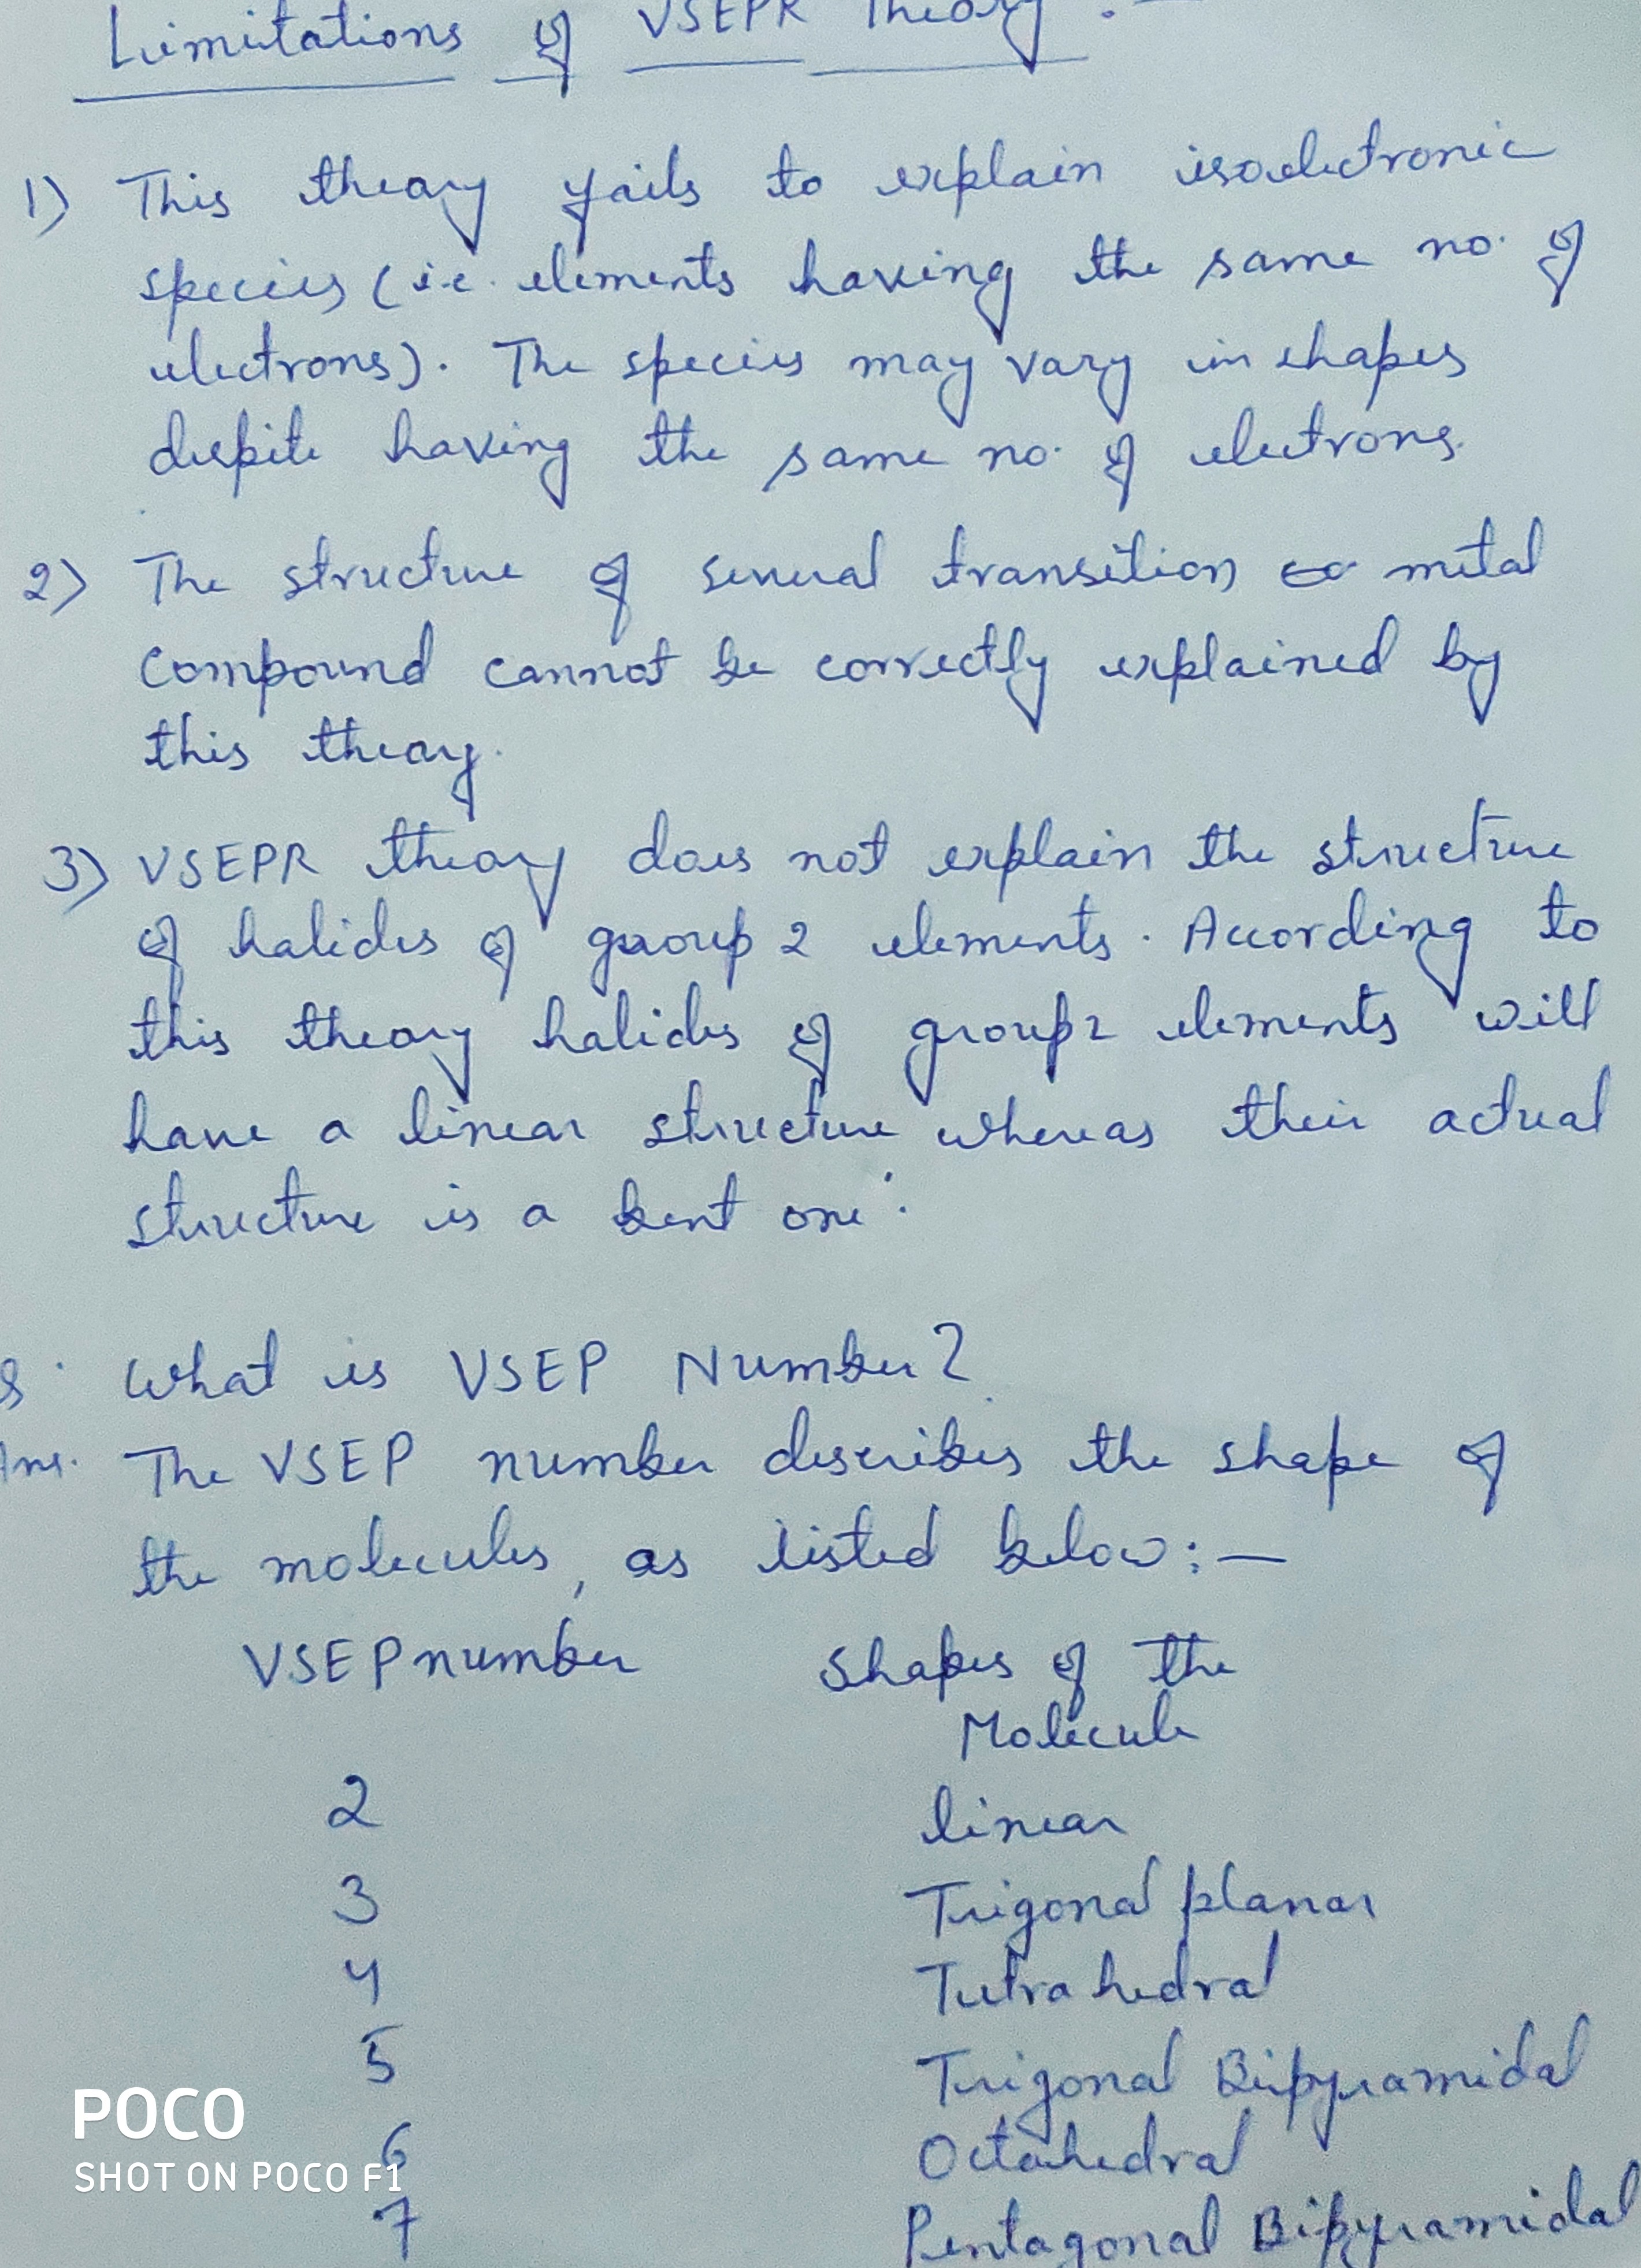 Limitations of VSEPR Theory :-
1) This theory fails to explain isoelectronic
species (i.e. elements having the same no. of
electrons). The species may vary in shapes
despite having the same no. of electrons.
2) The structure of several transition metal
compound cannot be correctly explained by
this theory.
3) VSEPR theory does not explain the structure
of halides of group 2 elements. According to
this theory halides of group 2 elements will
have a linear structure whereas their actual
structure is a bent one.
What is VSEP Number?
Ans. The VSEP number describes the shape of
the molecules, as listed below:—
VSEP number Shapes of the
Molecule
2 linear
3 Trigonal planar
4 Tetrahedral
5 Trigonal Bipyramidal
6 Octahedral
7 Pentagonal Bipyramidal
POCO
SHOT ON POCO F1